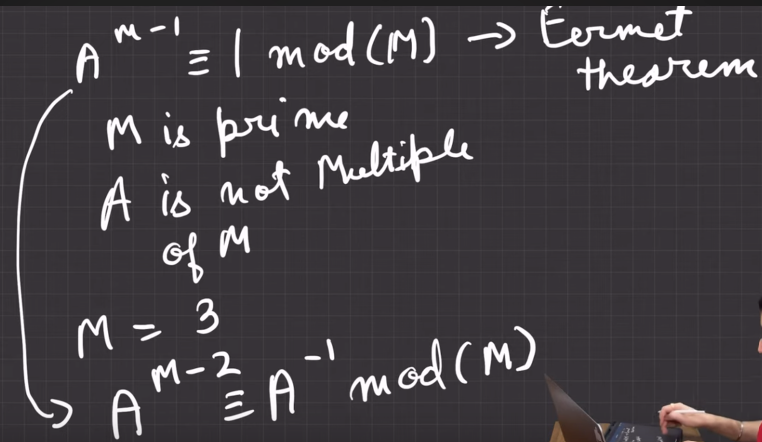 A^m-1 ≡ 1 mod(M) → Fermet
theorem
M is prime
A is not Multiple
of M
M = 3
A^M-2 ≡ A^-1 mod(M)